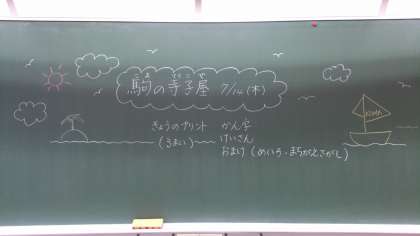 駒の寺子屋 7/14(木)
きょうのプリント かん字
(3まい) けいさん
おまけ(めいろ・まちがえさがし)